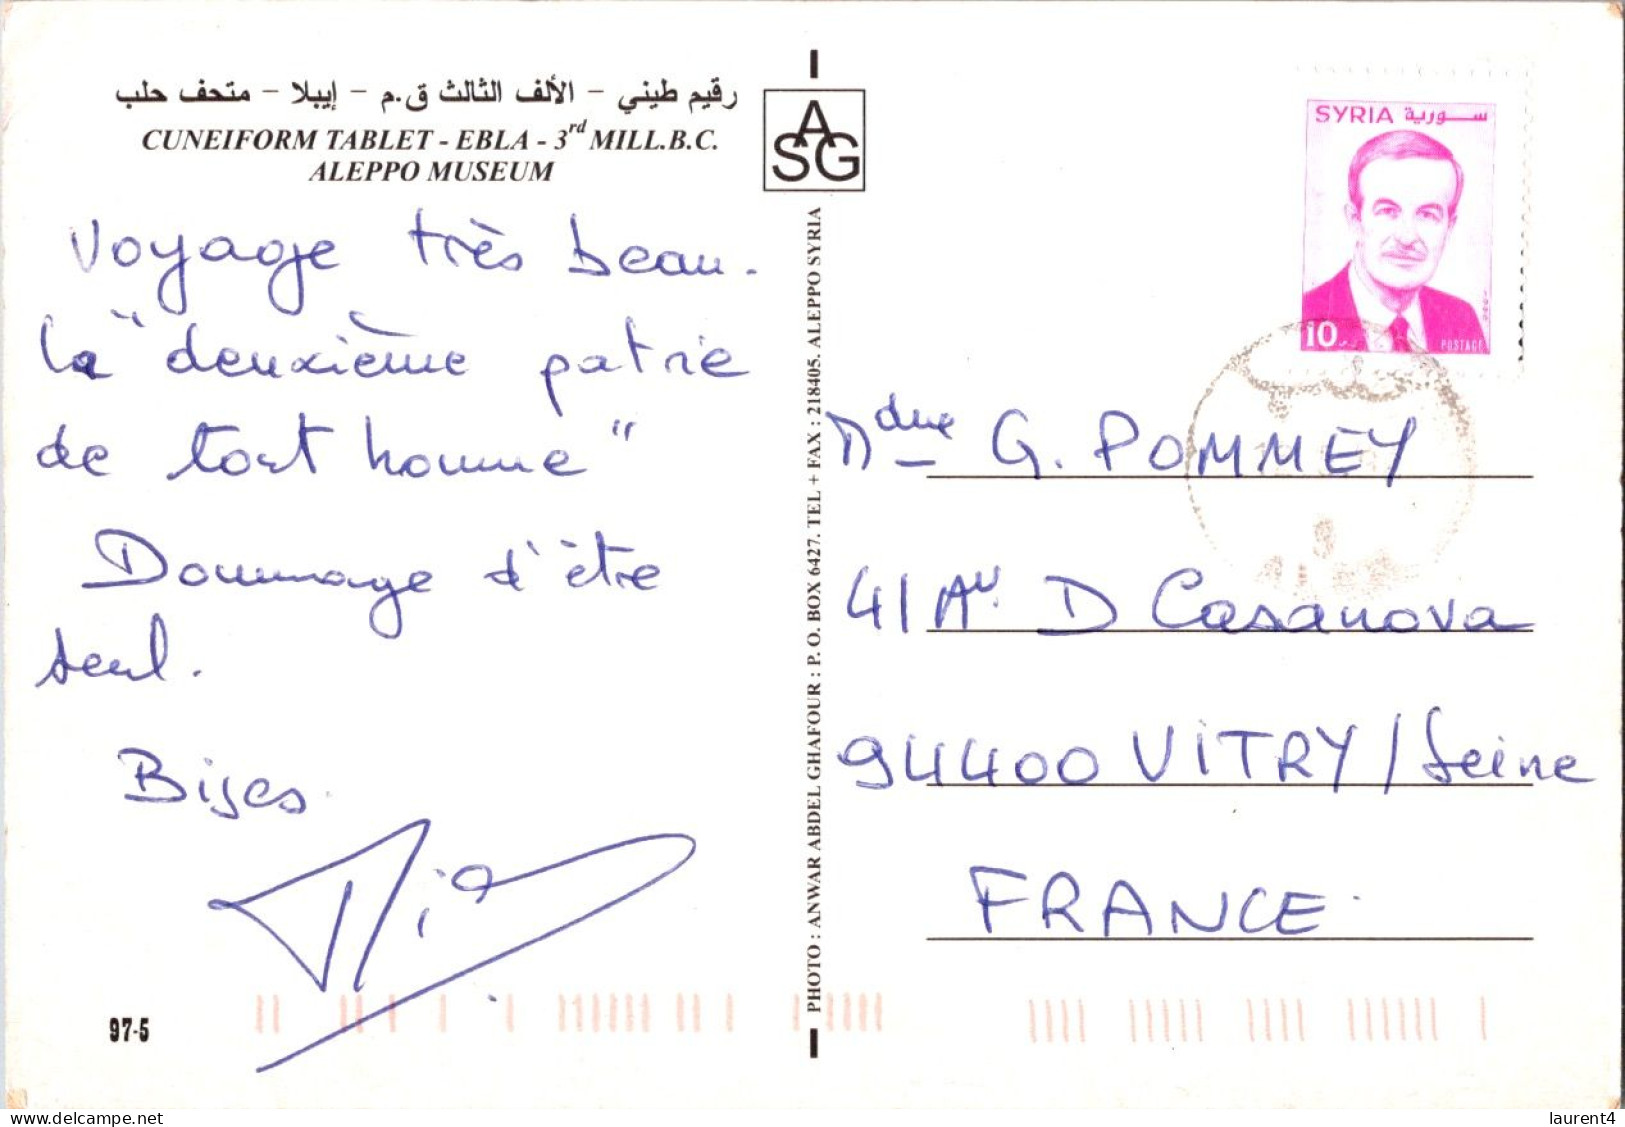 رقيم طيني - الألف الثالث ق.م - إيبلا - متحف حلب
CUNEIFORM TABLET - EBLA - 3rd MILL.B.C.
ALEPPO MUSEUM
Voyage très beau.
la "deuxième patrie
de tout homme"
Dommage d'être
seul.
Bises
97-5
ASG
PHOTO : ANWAR ABDEL GHAFOUR : P. O. BOX 6427. TEL + FAX : 218405. ALEPPO SYRIA
SYRIA سورية
10
POSTAGE
Mme G. POMMEY
41 Av. D Casanova
94400 VITRY / Seine
FRANCE
Delcampe.com
laurent4